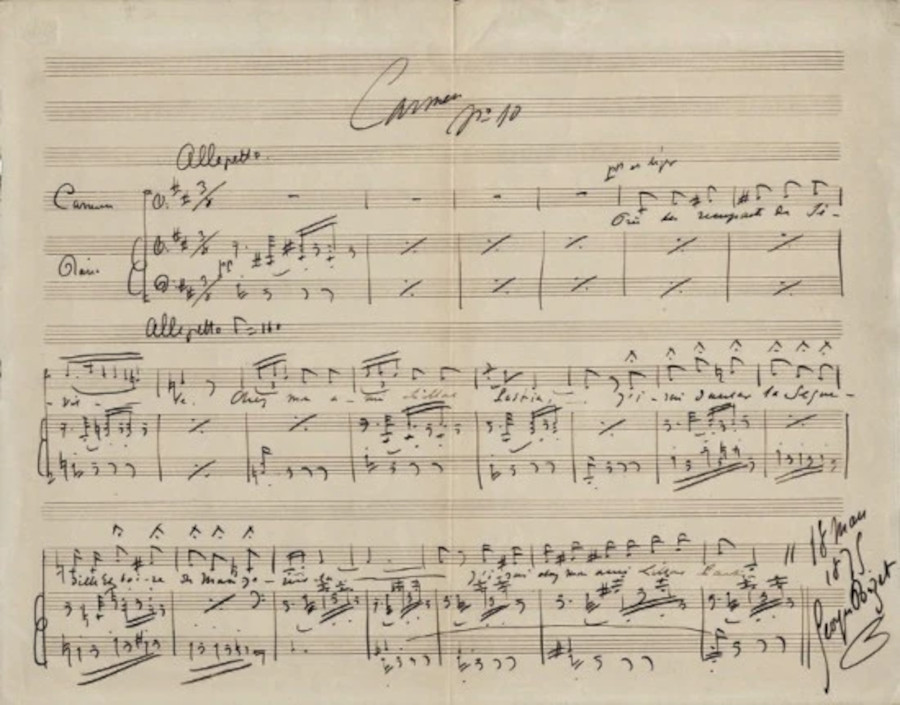 Carmen
No 10
Allegretto.
Carmen
et léger
Près des remparts de Sé-
Piano
pp
Allegretto = 160
- vil - le, Chez mon a - mi Lillas Pastia, J'i - rai danser laSégue -
dille et boi - re du Manza - nilla J'i - rai chez mon ami Lillas Pastia
18 Mars
1875
Georges Bizet